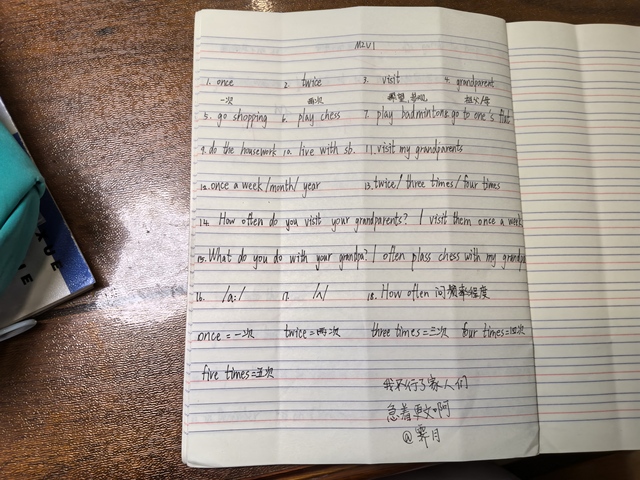 M2U1
1. once 2. twice 3. visit 4. grandparent
一次 两次 希望,参观 祖父/母
5. go shopping 6. play chess 7. play badminton 8. go to one's flat
9. do the housework 10. live with sb. 11. visit my grandparents
12. once a week/month/year 13. twice/three times/four times
14. How often do you visit your grandparents? I visit them once a week
15. What do you do with your grandpa? I often plass chess with my grandpa
16. /a:/ 17. /ʌ/ 18. How often 问频率程度
once=一次 twice=两次 three times=三次 four times=四次
five times=五次
我不行了家人们
急着更文啊
@霁月